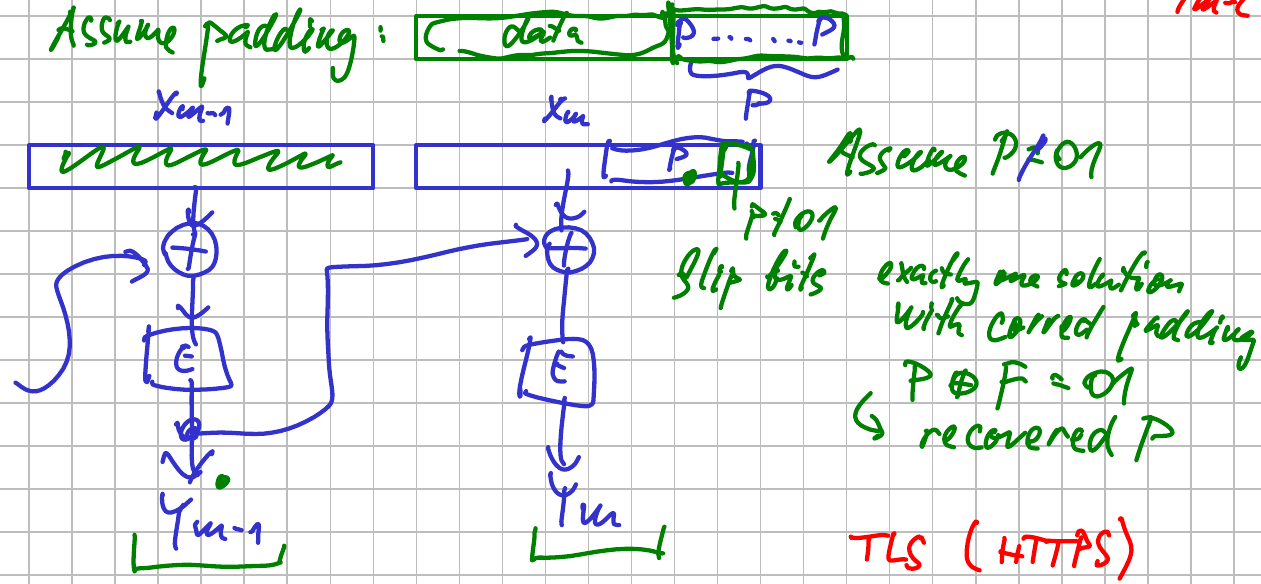 Assume padding: data P ...... P
P
Xm-1
Xm
P
Assume P≠01
P≠01
flip bits
exactly one solution
with corred padding
P ⊕ F = 01
recovered P
E
E
Ym-1
Ym
TLS (HTTPS)